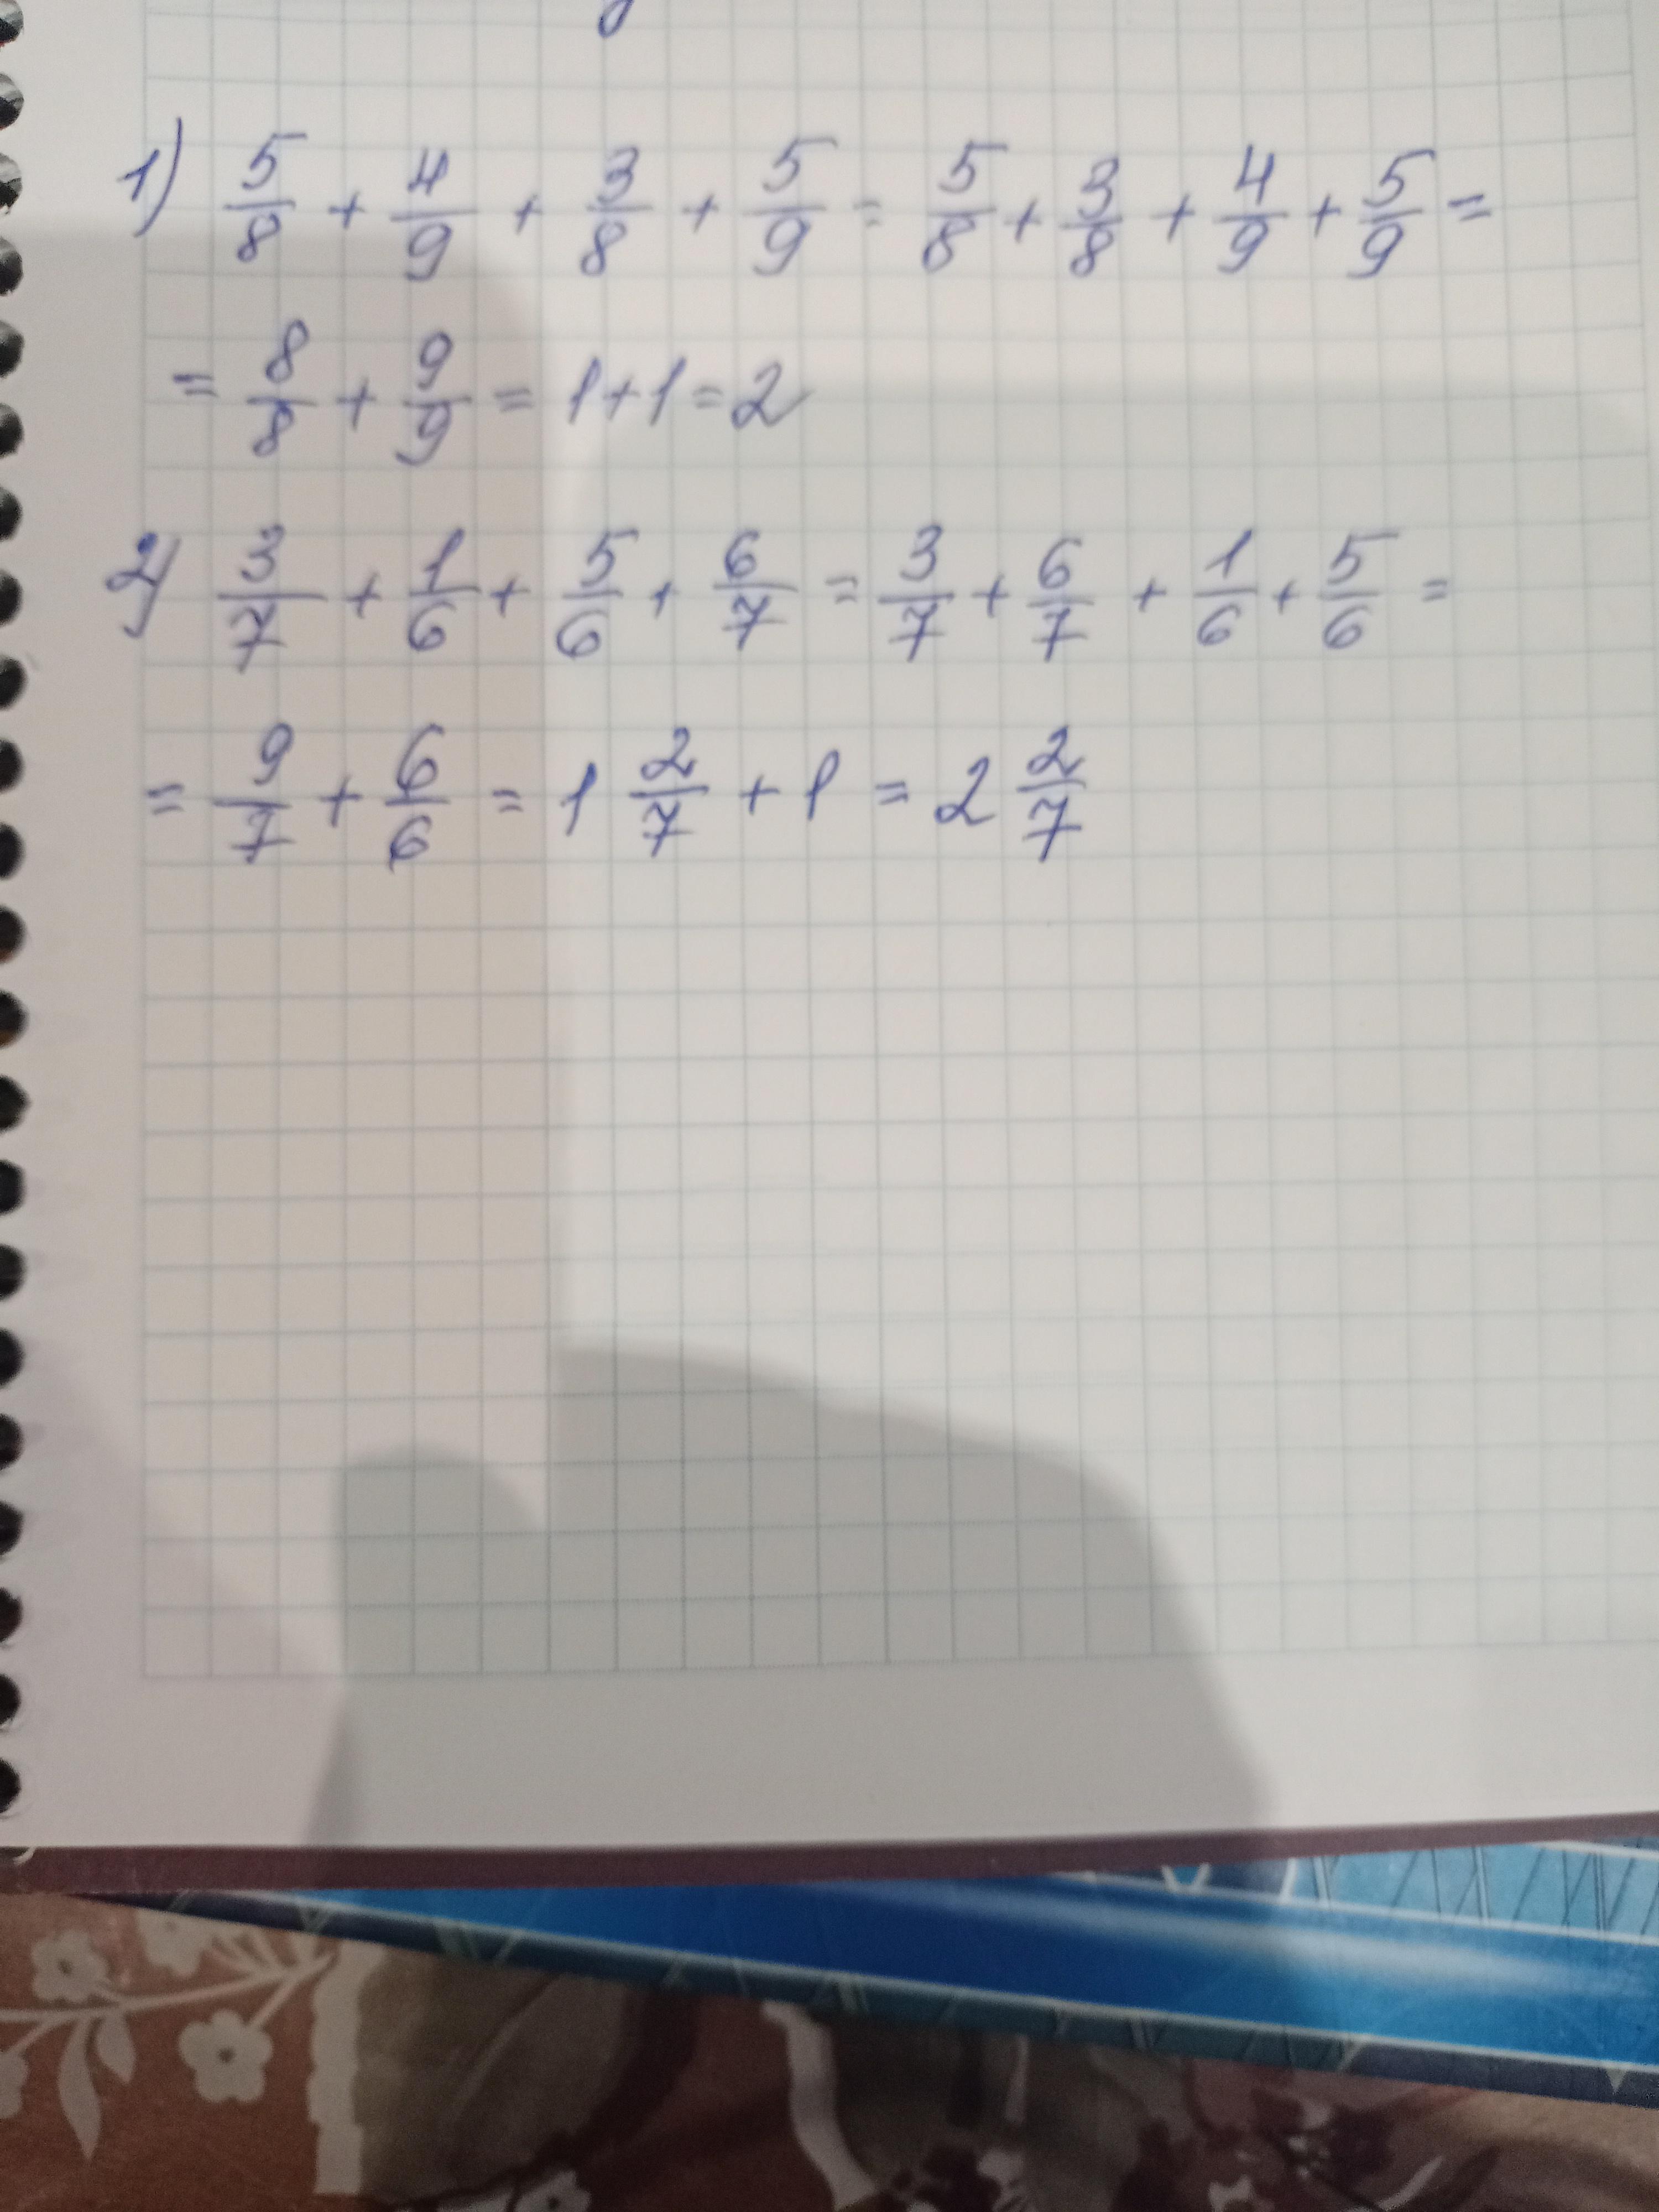 1) 5/8 + 4/9 + 3/8 + 5/9 = 5/8 + 3/8 + 4/9 + 5/9 =
= 8/8 + 9/9 = 1+1=2
2) 3/7 + 1/6 + 5/6 + 6/7 = 3/7 + 6/7 + 1/6 + 5/6 =
= 9/7 + 6/6 = 1 2/7 + 1 = 2 2/7